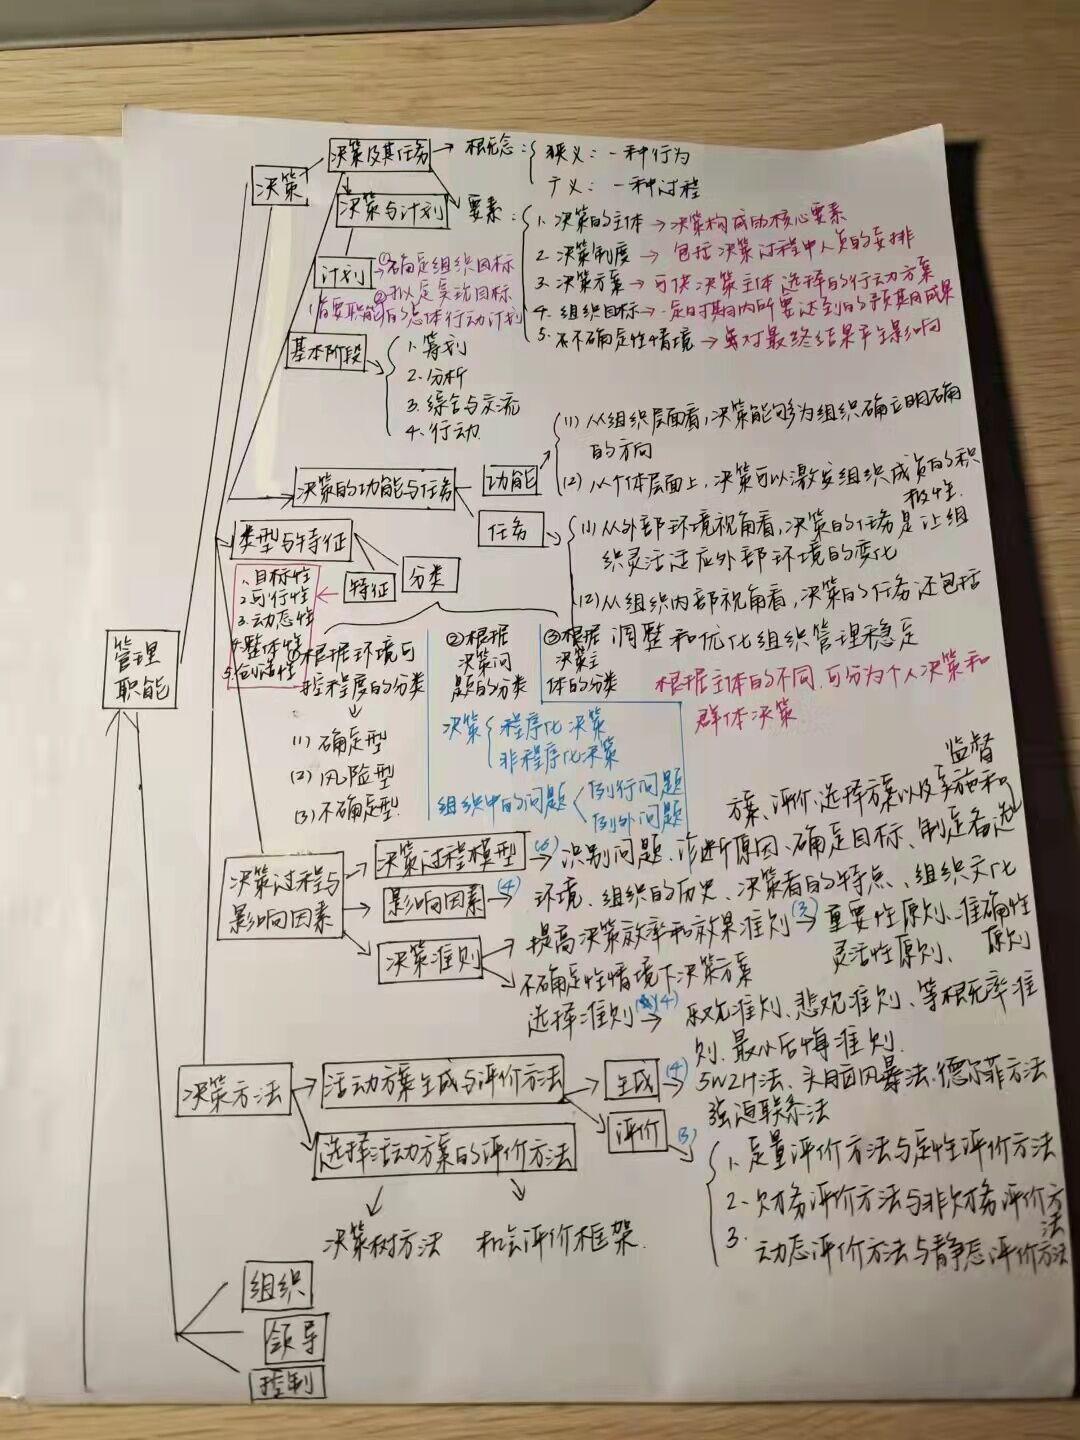 决策及其任务 → 概念：
狭义：一种行为
广义：一种过程
决策
决策与计划
要素：
1. 决策的主体 → 决策构成的核心要素
2. 决策制度 → 包括决策过程中人员的安排
3. 决策方案 → 可供决策主体选择的行动方案
4. 组织目标 → 一定时期内所要达到的预期成果
5. 不确定性情境 → 虽对最终结果产生影响
计划
①确定组织目标
②拟定实现目标
首要职能
的总体行动计划
基本阶段
1. 筹划
2. 分析
3. 综合与交流
4. 行动
决策的功能与任务
功能
(1) 从组织层面看，决策能够为组织确立明确
的方向
(2) 从个体层面上，决策可以激发组织成员的积
极性.
任务
(1) 从外部环境视角看，决策的任务是让组
织灵活适应外部环境的变化
(2) 从组织内部视角看，决策的任务还包括
调整和优化组织管理稳定
类型与特征
特征
分类
1. 目标性
2. 可行性
3. 动态性
4. 整体性
5. 创造性
管理
职能
①根据环境可
控程度的分类
(1) 确定型
(2) 风险型
(3) 不确定型.
②根据
决策问
题的分类
决策
程序化决策
非程序化决策
组织中的问题
例行问题
例外问题
③根据
决策主
体的分类
根据主体的不同，可分为个人决策和
群体决策
决策过程与
影响因素
决策过程模型 (6) → 识别问题、诊断原因、确定目标、制定备选
方案、评价、选择方案以及实施和
监督
影响因素 (4) → 环境、组织的历史、决策者的特点、组织文化
决策准则
提高决策效率和效果准则 (3) → 重要性原则、准确性
原则
灵活性原则、
不确定性情境下决策方案
选择准则 (4) → 乐观准则、悲观准则、等概率准
则、最小后悔准则.
决策方法
活动方案生成与评价方法
生成 (4) → 5W2H法、头脑风暴法、德尔菲方法
强迫联系法
评价 (3)
1. 定量评价方法与定性评价方法
2. 财务评价方法与非财务评价方
法
3. 动态评价方法与静态评价方法
选择活动方案的评价方法
决策树方法
机会评价框架.
组织
领导
控制